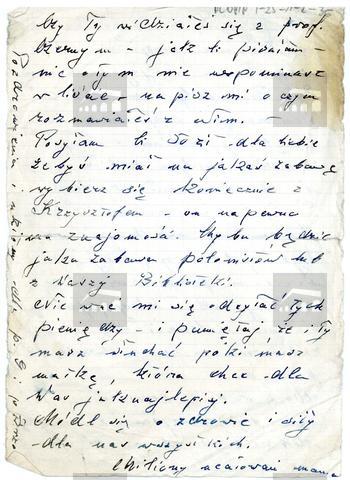 Czy Ty widziałeś się z prof.
Czerny m - jak ci pisałam -
nic o tym nie wspominasz
w liście - napisz mi o czym
rozmawiałeś z Nim. -
Posyłam Ci 50 zł - dla Ciebie
żebyś miał na jakąś zabawę
wybierz się koniecznie z
Krzysztofem - on na pewno
ma znajomości. Chyba będzie
jakaś zabawa polonistów lub
z Waszej Biblioteki.
Nie waż mi się odsyłać tych
pieniędzy - i pamiętaj że i Ty
masz słuchać póki masz
matkę która chce dla
Was jak najlepiej.
Módl się o zdrowie i siły
- dla nas wszystkich.
Miliony ucałowań mama
Pozdrowienia i ukłony dla p. E. i p.